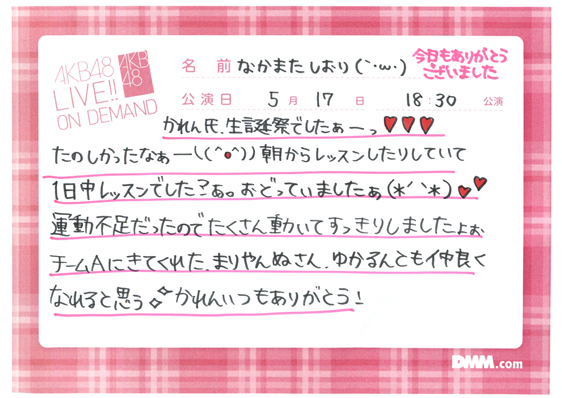 AKB48
LIVE!!
ON DEMAND
AKB
48
名 前 なかまたしおり(`･ω･)
今日もありがとう
ございました
公演日 5月 17日 18:30 公演
かれん氏、生誕祭でしたぁーっ♥♥♥
たのしかったなぁー((^●^))朝からレッスンしたりしていて
1日中レッスンでした?ぁ。おどっていましたぁ(*´`*)♥♥
運動不足だったのでたくさん動いてすっきりしましたよぉ
チームAにきてくれた、まりやんぬさん、ゆかるんとも仲良く
なれると思う✧かれんいつもありがとう!
DMM.com